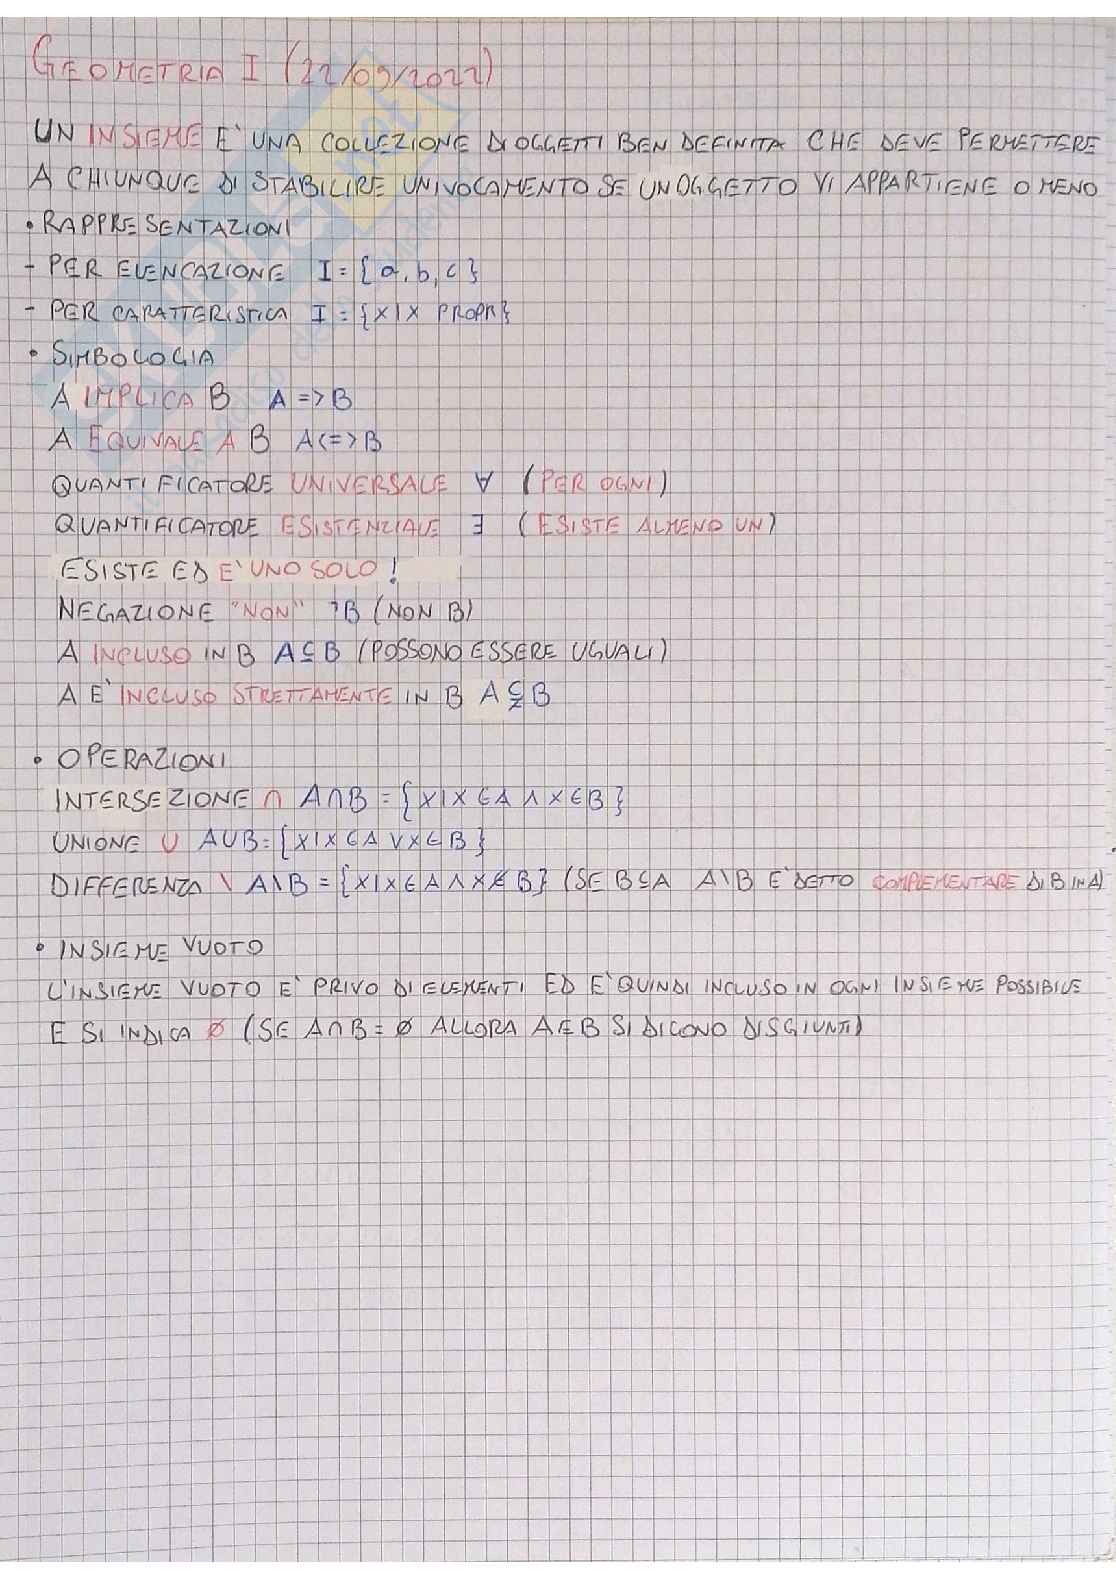 GEOMETRIA I (22/09/2022)
UN INSIEME E' UNA COLLEZIONE DI OGGETTI BEN DEFINITA CHE DEVE PERMETTERE
A CHIUNQUE DI STABILIRE UNIVOCAMENTO SE UN OGGETTO VI APPARTIENE O MENO
• RAPPRESENTAZIONI
- PER ELENCAZIONE I = {a, b, c}
- PER CARATTERISTICA I = {X | X PROPR}
• SIMBOLOGIA
A IMPLICA B A => B
A EQUIVALE A B A <=> B
QUANTIFICATORE UNIVERSALE ∀ (PER OGNI)
QUANTIFICATORE ESISTENZIALE ∃ (ESISTE ALMENO UN)
ESISTE ED E' UNO SOLO !
NEGAZIONE "NON" ¬B (NON B)
A INCLUSO IN B A⊆B (POSSONO ESSERE UGUALI)
A E' INCLUSO STRETTAMENTE IN B A⊊B
• OPERAZIONI
INTERSEZIONE ∩ A∩B = {X | X ∈ A ∧ X ∈ B}
UNIONE ∪ A∪B = {X | X ∈ A ∨ X ∈ B}
DIFFERENZA \ A\B = {X | X ∈ A ∧ X ∉ B} (SE B⊆A A\B E' DETTO COMPLEMENTARE DI B IN A)
• INSIEME VUOTO
L'INSIEME VUOTO E' PRIVO DI ELEMENTI ED E' QUINDI INCLUSO IN OGNI INSIEME POSSIBILE
E SI INDICA ∅ (SE A∩B = ∅ ALLORA A E B SI DICONO DISGIUNTI)